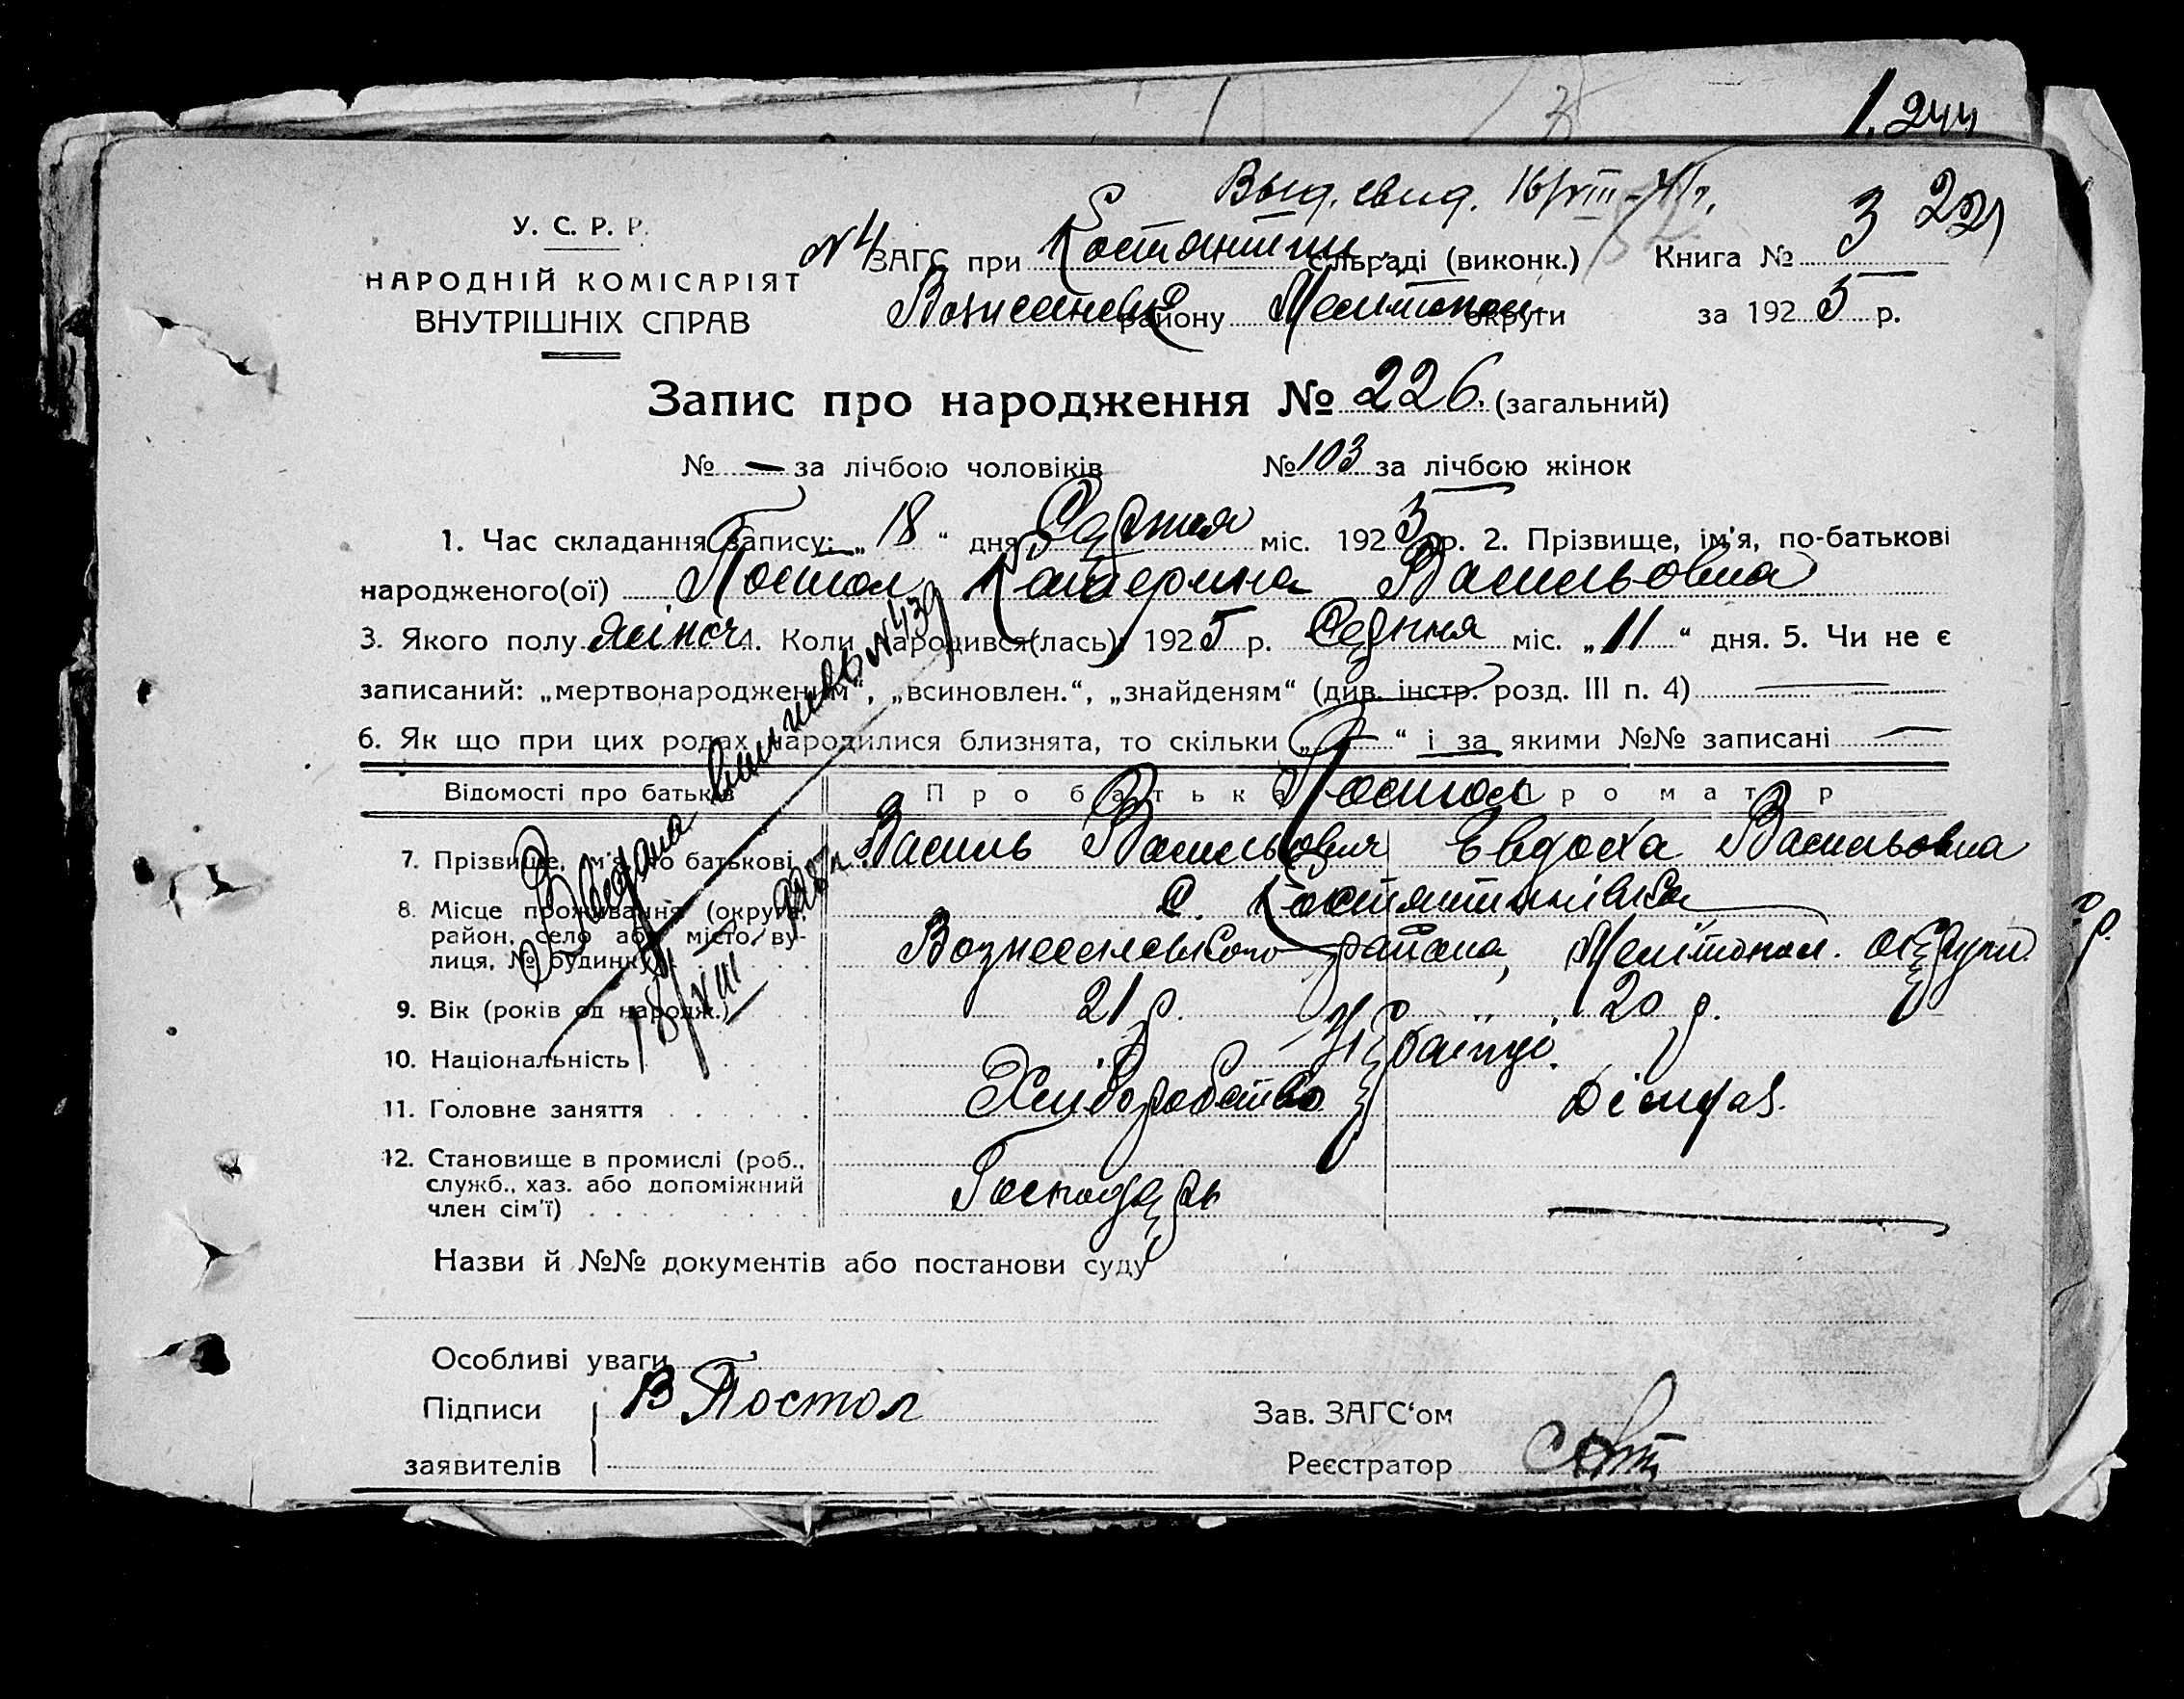 1.244
Выд. свид. 16/VIII-41г.
У. С. Р. Р.
N4 ЗАГС при Костянтин. сільраді (виконк.) Книга № 3
НАРОДНІЙ КОМІСАРІЯТ
ВНУТРІШНІХ СПРАВ
Вознесенськ району Мелітопол. округи за 1925 р.
Запис про народження № 226. (загальний)
№ — за лічбою чоловіків № 103 за лічбою жінок
1. Час складання запису: „18“ дня Серпня міс. 1925 р. 2. Прізвище, ім'я, по-батькові
народженого(ої) Постол Катерина Васильовна
3. Якого полу жіноч. 4. Коли народився(лась): 1925 р. Серпня міс. „11“ дня. 5. Чи не є
записаний: „мертвонародженим“, „всиновлен.“, „знайденям“ (див. інстр. розд. III п. 4) —
6. Як що при цих родах народилися близнята, то скільки „—“ і за якими №№ записані —
Відомості про батьків Про батька Про матір
Постол
7. Прізвище, ім'я, по батькові Василь Васильович Евдоха Васильовна
8. Місце проживання (округа, район, село або місто, вулиця, № будинку) с. Костянтинівка
Вознесенського района, Мелітопол. округи.
9. Вік (років од народж.) 21 р. 20 р.
10. Національність Українці.
11. Головне заняття Хлиборобство
12. Становище в промислі (роб., служб., хаз. або допоміжний член сім'ї) Господарь —
Видана виписка N439
18/VIII 1925 г.
Назви й №№ документів або постанови суду
Особливі уваги
Підписи В Постол Зав. ЗАГС'ом
заявителів Реєстратор